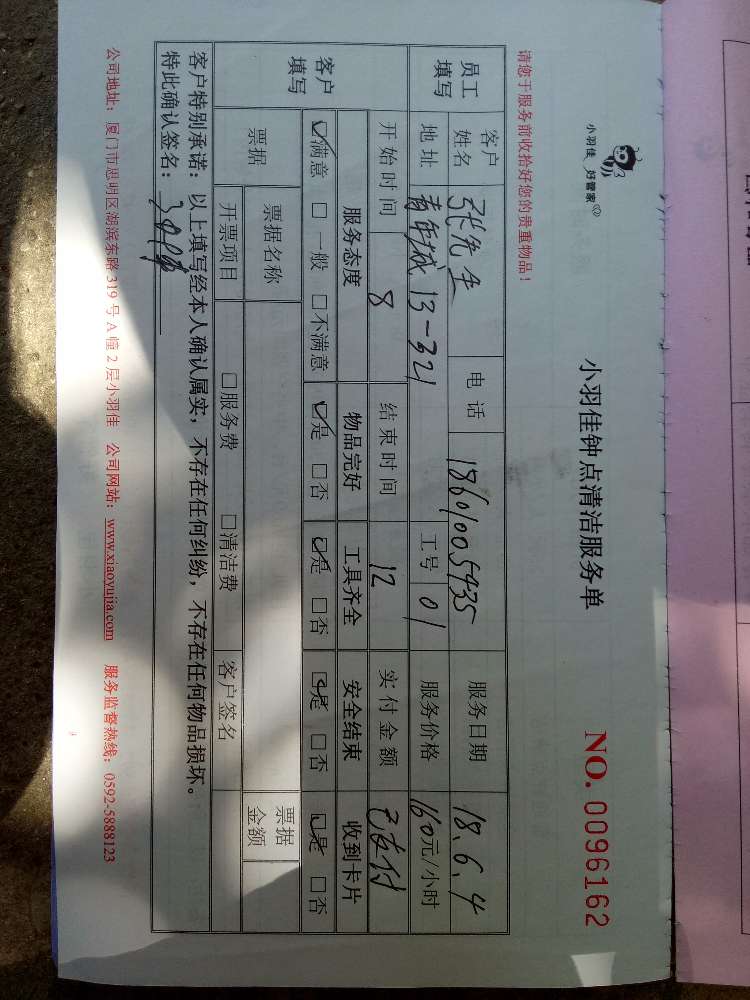 小羽佳 好管家
小羽佳钟点清洁服务单
NO. 0096162
请您于服务前收拾好您的贵重物品！
员工填写 客户姓名 张先生 电话 18601005935 服务日期 18.6.4
地址 青年城13-321 工号 01 服务价格 160元/小时
开始时间 8 结束时间 12 实付金额 已支付
客户填写 服务态度 物品完好 工具齐全 安全结束 收到卡片
☑满意 □一般 □不满意 ☑是 □否 ☑是 □否 ☑是 □否 ☑是 □否
票据 票据名称 票据金额
开票项目 □服务费 □清洁费 客户签名
客户特别承诺：以上填写经本人确认属实，不存在任何纠纷，不存在任何物品损坏。
特此确认签名：
公司地址：厦门市思明区湖滨东路319号A幢2层小羽佳 公司网站：www.xiaoyujia.com 服务监督热线：0592-5888123